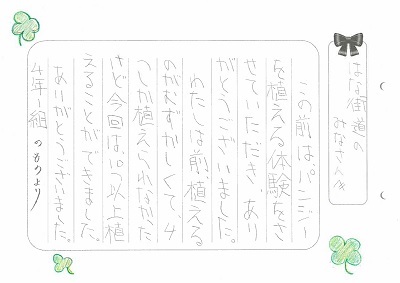 はな街道の
みなさんへ
この前は、パンジー
を植える体験をさ
せていただき、あり
がとうございました。
わたしは前、植える
のがむずかしくて、4
つしか植えられなかった
けど今回は、10つ以上植
えることができました。
ありがとうございました。
4年1組 のあより